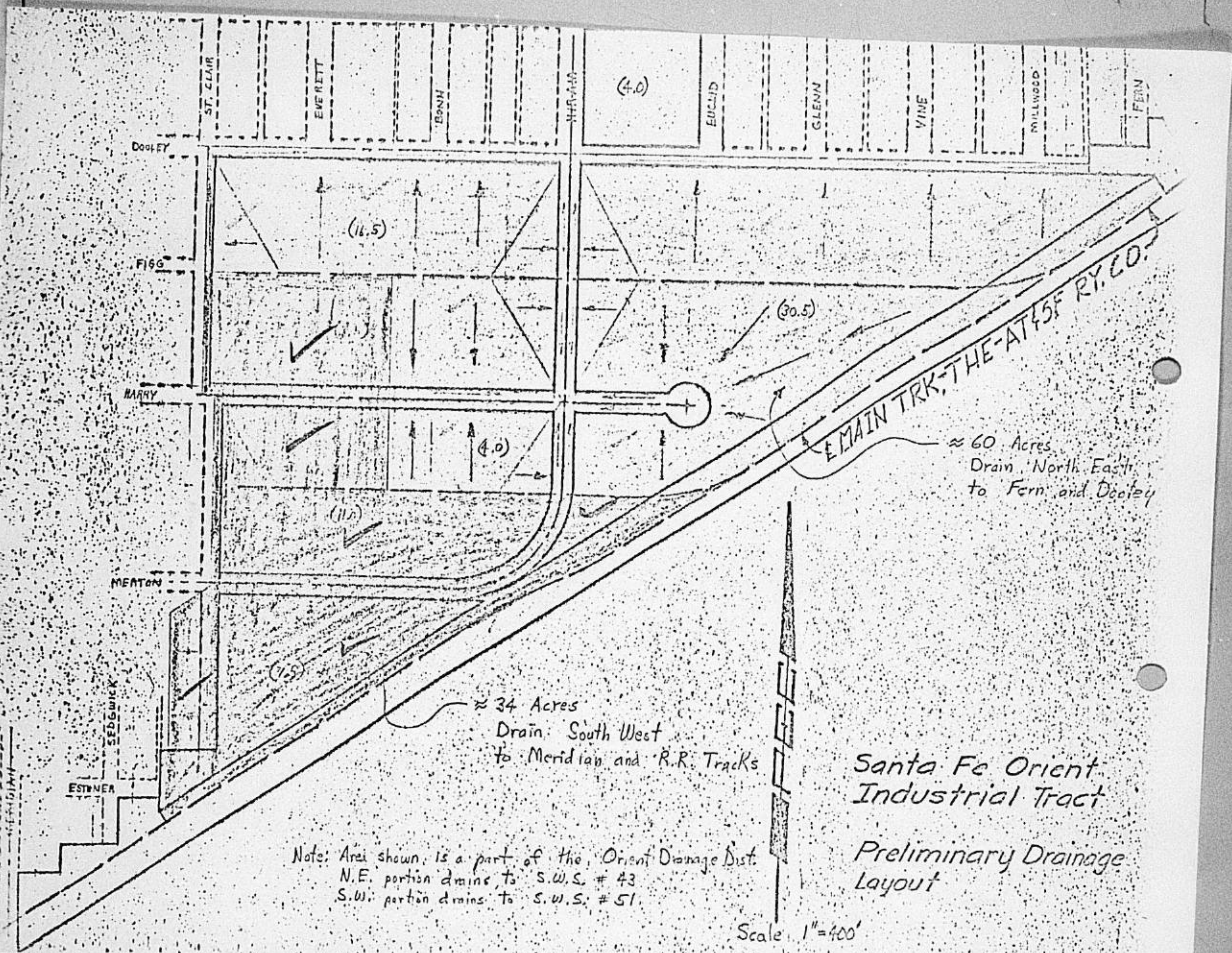 ST. CLAIR
EVERETT
BONN
HIRAM
(4.0)
EUCLID
GLENN
VINE
MILLWOOD
FERN
DOOLEY
(16.5)
FIGG
(30.5)
HARRY
℄ MAIN TRK.-THE-AT&SF RY. CO.
(4.0)
≈ 60 Acres
Drain North East
to Fern and Dooley
MERTON
SEDGWICK
≈ 34 Acres
Drain South West
to Meridian and R.R. Tracks
MERIDIAN
Santa Fe Orient
Industrial Tract
Preliminary Drainage
Layout
Note: Area shown is a part of the Orient Drainage Dist.
N.E. portion drains to S.W.S. # 43
S.W. portion drains to S.W.S. # 51
Scale 1"=400'